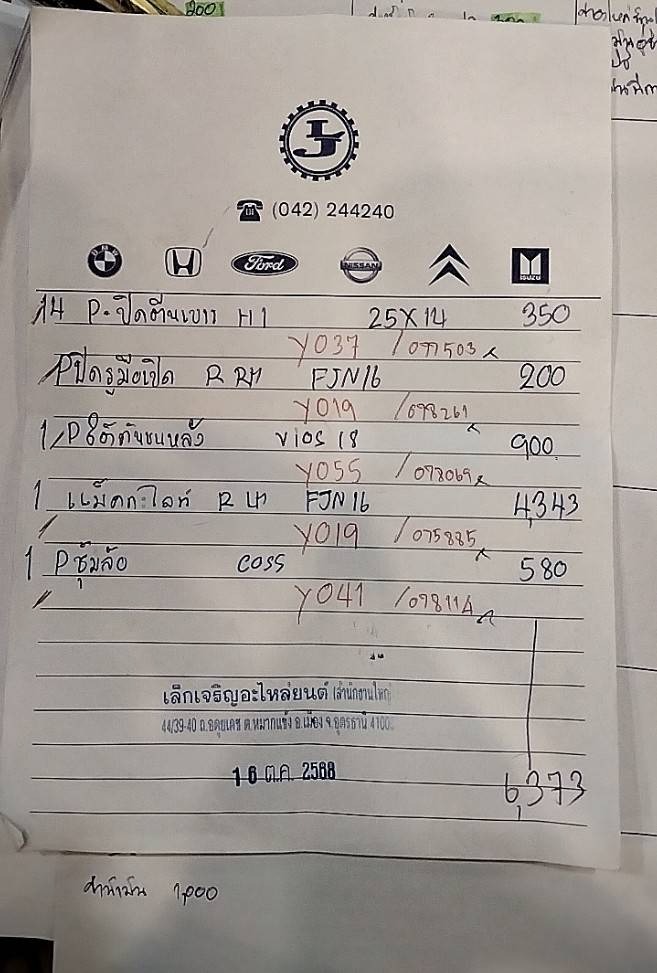 200
LJ
(042) 244240
BMW HONDA Ford NISSAN ISUZU
14 P.ปิดตีนเบาะ H1 25x14 350
Y037 / 077503
Pปิดรูมือเปิด R RH FJN16 200
Y019 / 098261
1 P ใต้กันชนหลัง vios 18 900
Y055 / 098069
1 แม็คกะไลท์ R LH FJN16 4,343
Y019 / 075885
1 P ซุ้มล้อ COSS 580
Y041 / 098114
เล็กเจริญอะไหล่ยนต์ (สำนักงานใหญ่)
44/39-40 ถ.อดุยเดช ต.หมากแข้ง อ.เมือง จ.อุดรธานี 4100
16 ต.ค. 2568
6,373
ค่าน้ำมัน 1,000